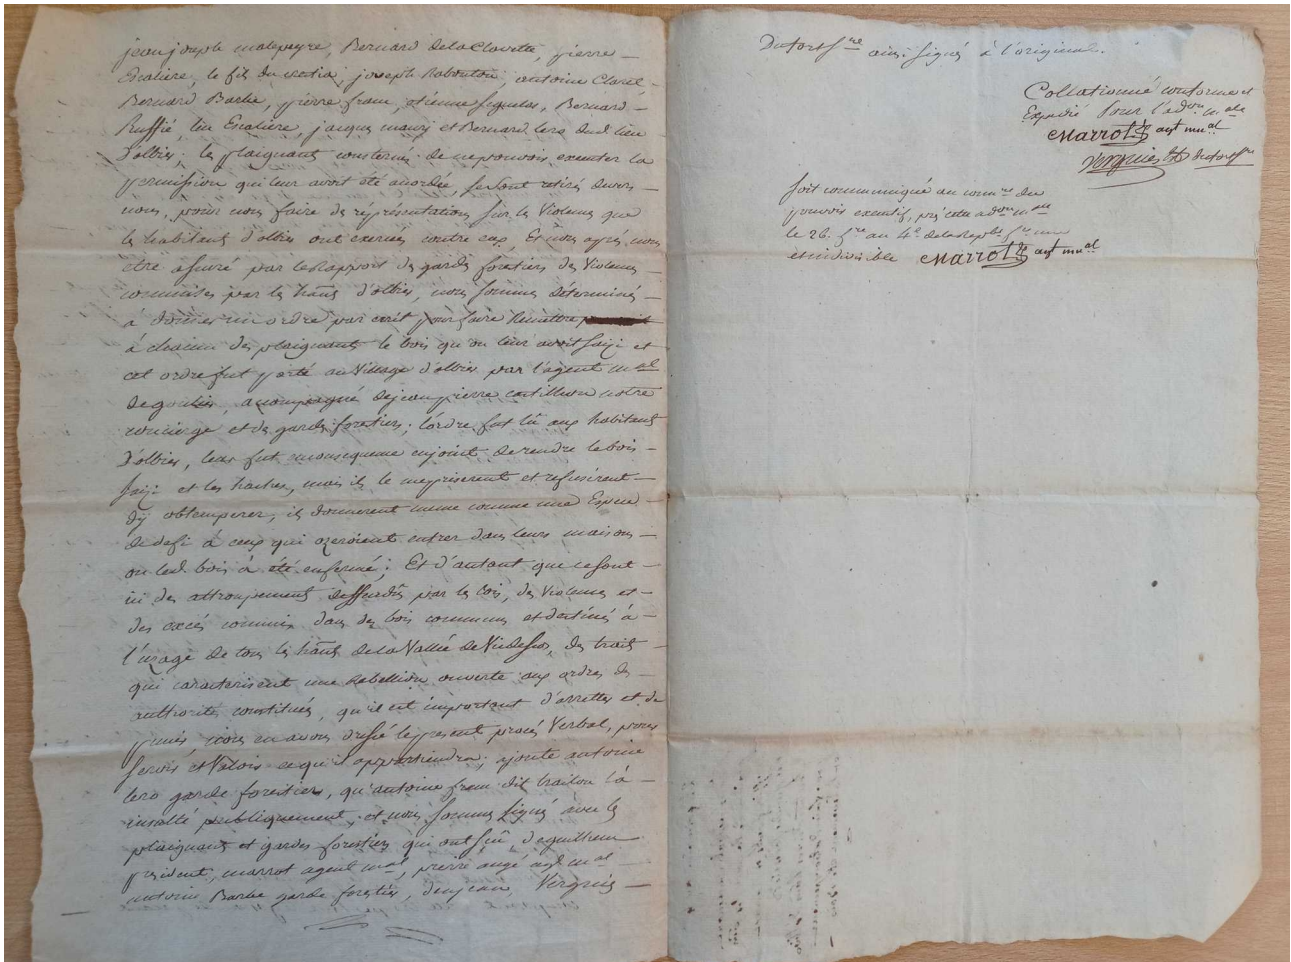 jean joseph malepeyre, Bernard delaClavette, pierre
Escaliere, le fils du mentia, joseph Rabouton, antoine Claret
Bernard Barbe, pierre fram, etienne Siguelas, Bernard
Ruffié, leu Escaliere, jacques maury et Bernard lero dud. lieu
D'olbies; les plaignants consternés de ne pouvoir executer la
permission qui leur avoit été accordée, se sont retirés devers
nous, pour nous faire des réprésentations sur les Violences que
les habitants d'olbies ont exercées contre eux, Et nous après nous
etre assuré par le Rapport des gardes forestiers des Violences
commises par les hañts d'olbies, nous sommes déterminés
à donner un ordre par ecrit pour faire Remettre
à chacun des plaignants le bois qu'on leur avoit saizi et
cet ordre fut porté au Village d'olbies par l'agent mpal
de goulier, accompagné de jean pierre castillon notre
concierge et des gardes forestiers; l'ordre fut lû aux habitants
D'olbies, leur fut en consequence enjoint de rendre le bois
saizi et les haches, mais ils le mepriserent et refuserent
d'y obtemperer, ils donnerent meme comme une Espece
de defi à ceux qui ozeroient entrer dans leurs maisons
ou led. bois a été enfermé; Et d'autant que ce sont
ici des attroupements deffendus par les lois, des Violences et
des excès commis dans des bois communs et destinés à
l'uzage de tous les hañts de la Vallée de Vicdessos, des traits
qui caracterisent une Rebellion ouverte aux ordres des
authorités constituées, qu'il est important d'arretter et de
punir, nous en avons dressé le present procès Verbal, pour
servir et Valoir ce qu'il appartiendra; ajouté antoine
lero garde forestier, qu'antoine fram dit traitou l'a
insulté publiquement, et nous sommes signés avec les
plaignants et gardes forestiers qui ont sçu, deguilhem
président, marrot agent mal, pierre augé agt mal
antoine Barbe garde forestier, denjean, Vergnies
Dufort sre ainsi signés à l'original.
Collationné conforme et
Expedié Pour l'adon male
Marrot agt mual
Vergnies Dufort sre
soit communiqué au comre du
pouvoir executif, près cette adon mle
le 26. fre an 4e dela Repbe fse une
et indivisible Marrot agt mual